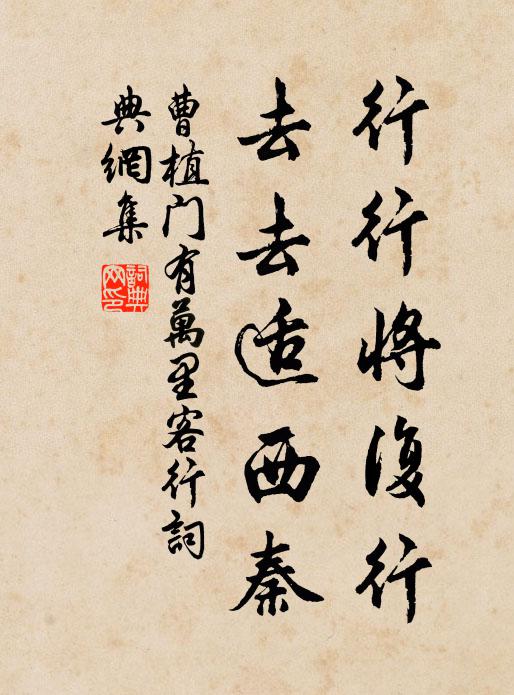 行行將復行
去去适西秦
曹植门有萬里客行詞
典網集
詞典
网印